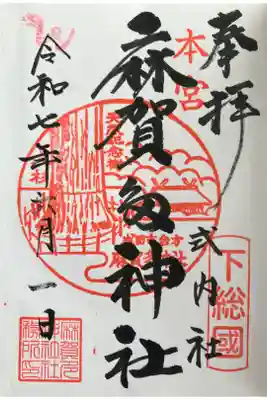 奉拝
本宮
式内社
下総國
麻賀夛神社
令和七年弐月一日